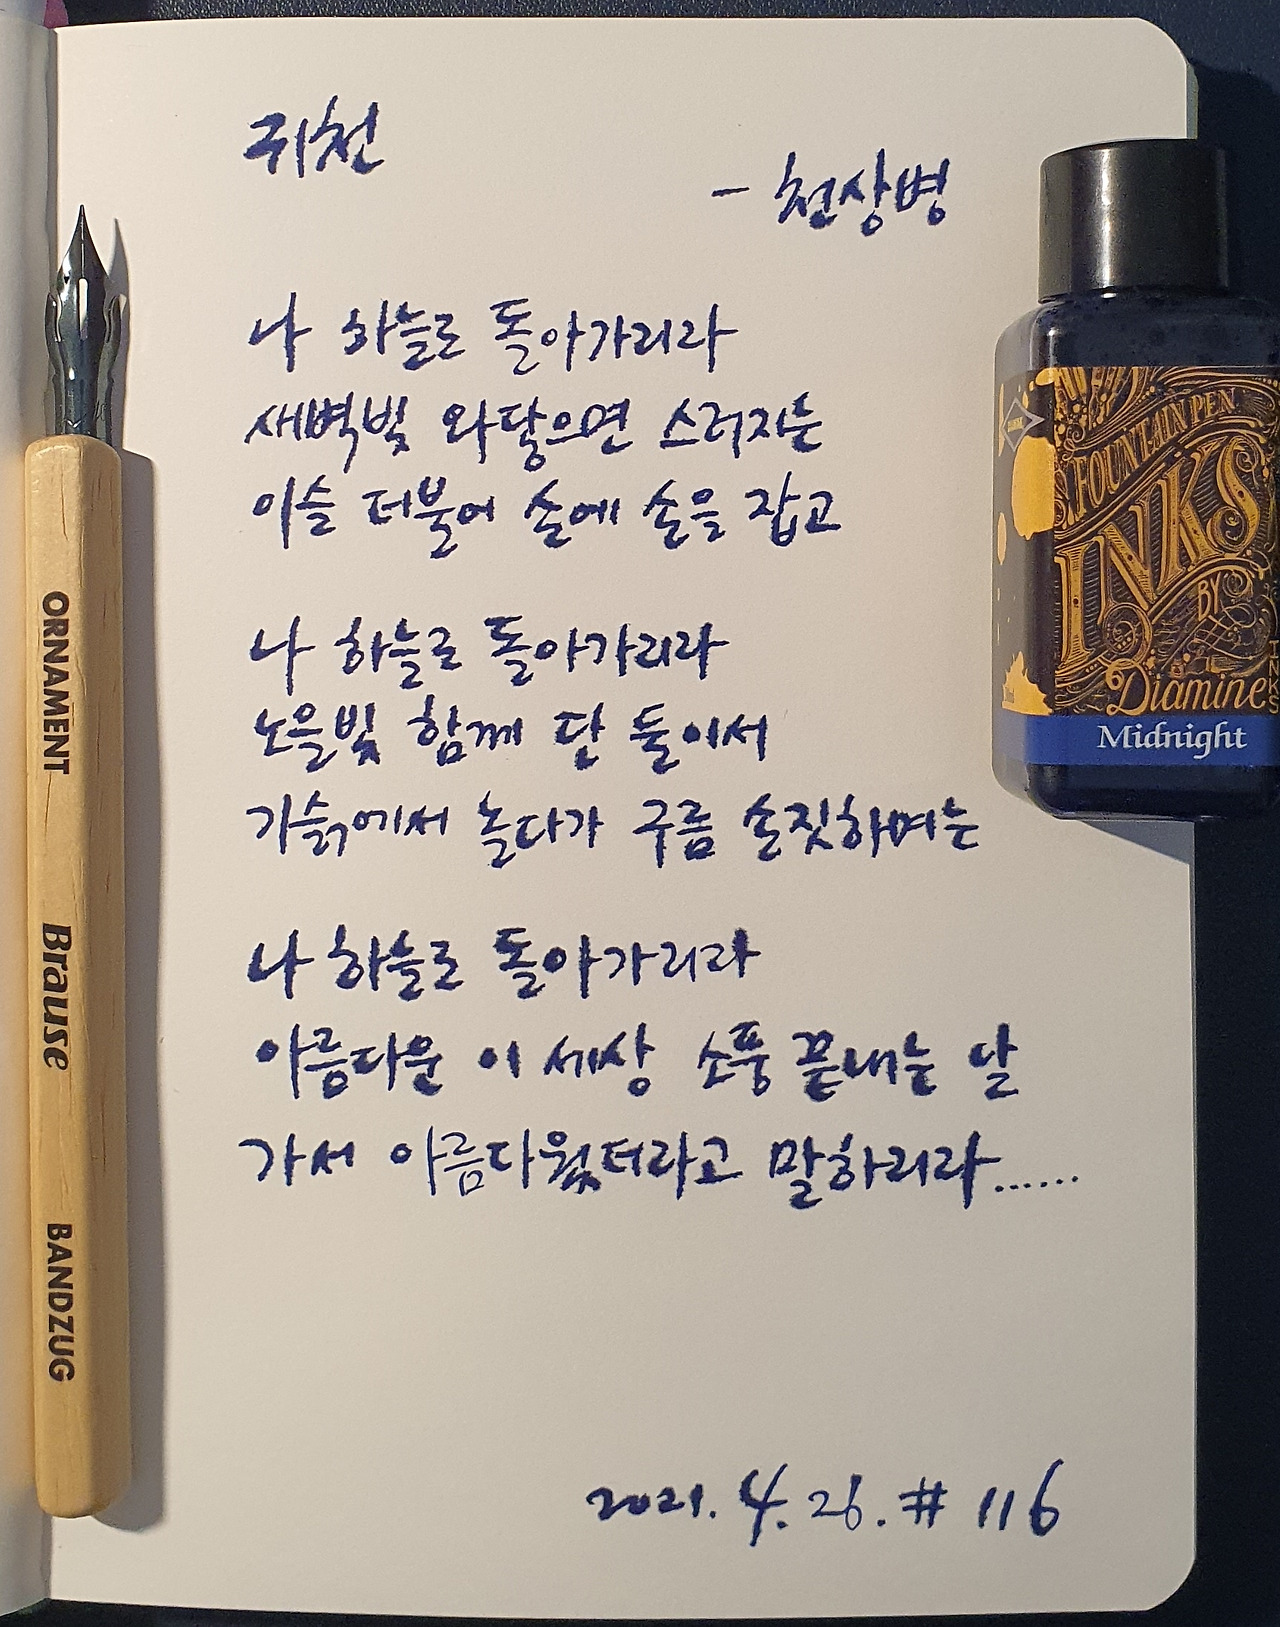 귀천
- 천상병
나 하늘로 돌아가리라
새벽빛 와 닿으면 스러지는
이슬 더불어 손에 손을 잡고
나 하늘로 돌아가리라
노을빛 함께 단 둘이서
기슭에서 놀다가 구름 손짓하며는
나 하늘로 돌아가리라
아름다운 이 세상 소풍 끝내는 날
가서 아름다웠더라고 말하리라......
2021. 4. 26. # 116
ORNAMENT Brause BANDZUG
FOUNTAIN PEN
INKS
BY
Diamine
Midnight